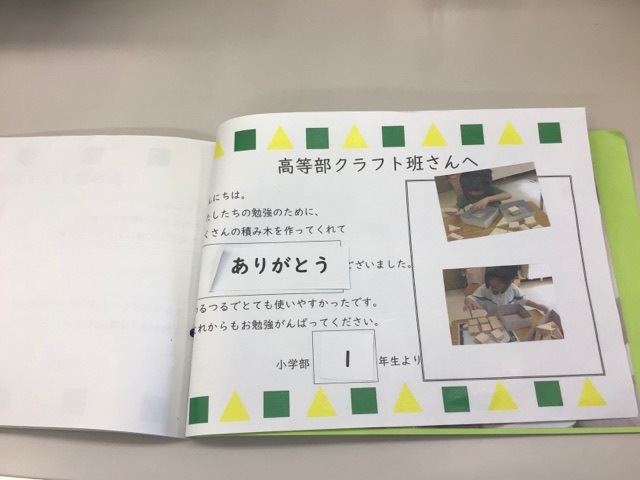 高等部クラフト班さんへ
んにちは。
たしたちの勉強のために、
くさんの積み木を作ってくれて
ありがとう
ございました。
るつるでとても使いやすかったです。
れからもお勉強がんばってください。
小学部 1 年生より